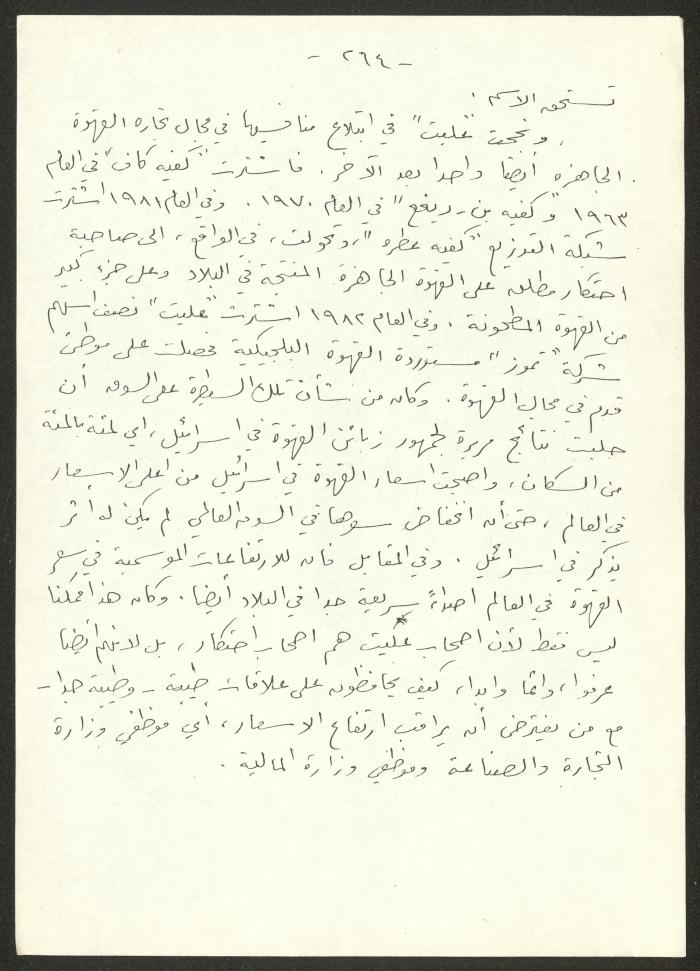 - ٢٦٤ -
تستحق الاسم .
. ونجحت "عليت" في ابتلاع منافسيها في مجال تجاره القهوة
الجاهزه أيضا واحدا بعد الآخر . فاشترت "كفيه كاف" في العام
١٩٦٣ "وكفيه بن - ريفع" في العام ١٩٧٠ . وفي العام ١٩٨١ اشترت
شبكة التوزيع "كفيه عطره"، وتحولت ، في الواقع ، الى صاحبة
احتكار مطلق على القهوة الجاهزة المنتجة في البلاد وعلى جزء كبير
من القهوة المطحونة . وفي العام ١٩٨٢ اشترت "عليت" نصف اسهم
شركة "تموز" مستوردة القهوة البلجيكية فحصلت على موطئ
قدم في مجال القهوة . وكان من شأن تلك السيطرة على السوق أن
جلبت نتائج مريرة لجمهور زبائن القهوة في اسرائيل ، اي لمئة بالمئة
من السكان ، واصبحت اسعار القهوة في اسرائيل من اعلى الاسعار
في العالم ، حتى أن انخفاض سعرها في السوق العالمي لم يكن له اثر
يذكر في اسرائيل . وفي المقابل فان للارتفاعات الموسمية في سعر
القهوة في العالم اصداءً سريعة جدا في البلاد أيضا . وكان هذا ممكنا
ليس فقط لأن اصحاب عليت هم اصحاب احتكار ، بل لانهم أيضا
عرفوا ، دائما وابدا ، كيف يحافظون على علاقات طيبة - وطيبة جدا -
مع من يفترض أن يراقب ارتفاع الاسعار ، أي موظفي وزارة
التجارة والصناعة وموظفي وزارة المالية .